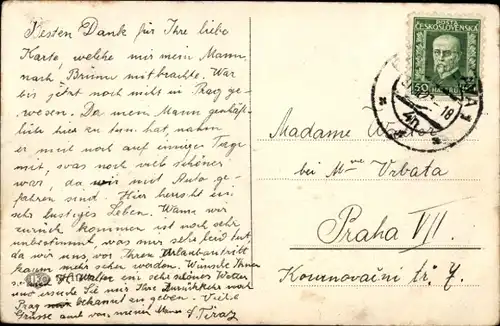 Besten Dank für Ihre liebe
Karte, welche mir mein Mann
nach Brünn mitbrachte. War
bis jetzt noch nicht in Prag ge-
wesen. Da mein Mann geschäft-
lich hier zu tun hat, nahm
er mich noch auf einige Tage
mit, was noch viel schöner
war, da wir mit Auto ge-
fahren sind. Hier herrscht ein
sehr lustiges Leben. Wann wir
zurück kommen ist noch sehr
unbestimmt, was mir sehr leid tut,
da wir uns vor Ihrem Urlaubantritt
kaum mehr sehen werden. Wünsche Ihnen
sehr schönes Wetter
und ersuche Sie mir Ihre Zurückkehr nach
Prag bekannt zu geben. Viele
Grüsse auch von meinem Mann
POŠTA
ČESKOSLOVENSKÁ
50
Madame
bei Mme Vrbata
Praha VII
Kamenovační tř. 4.